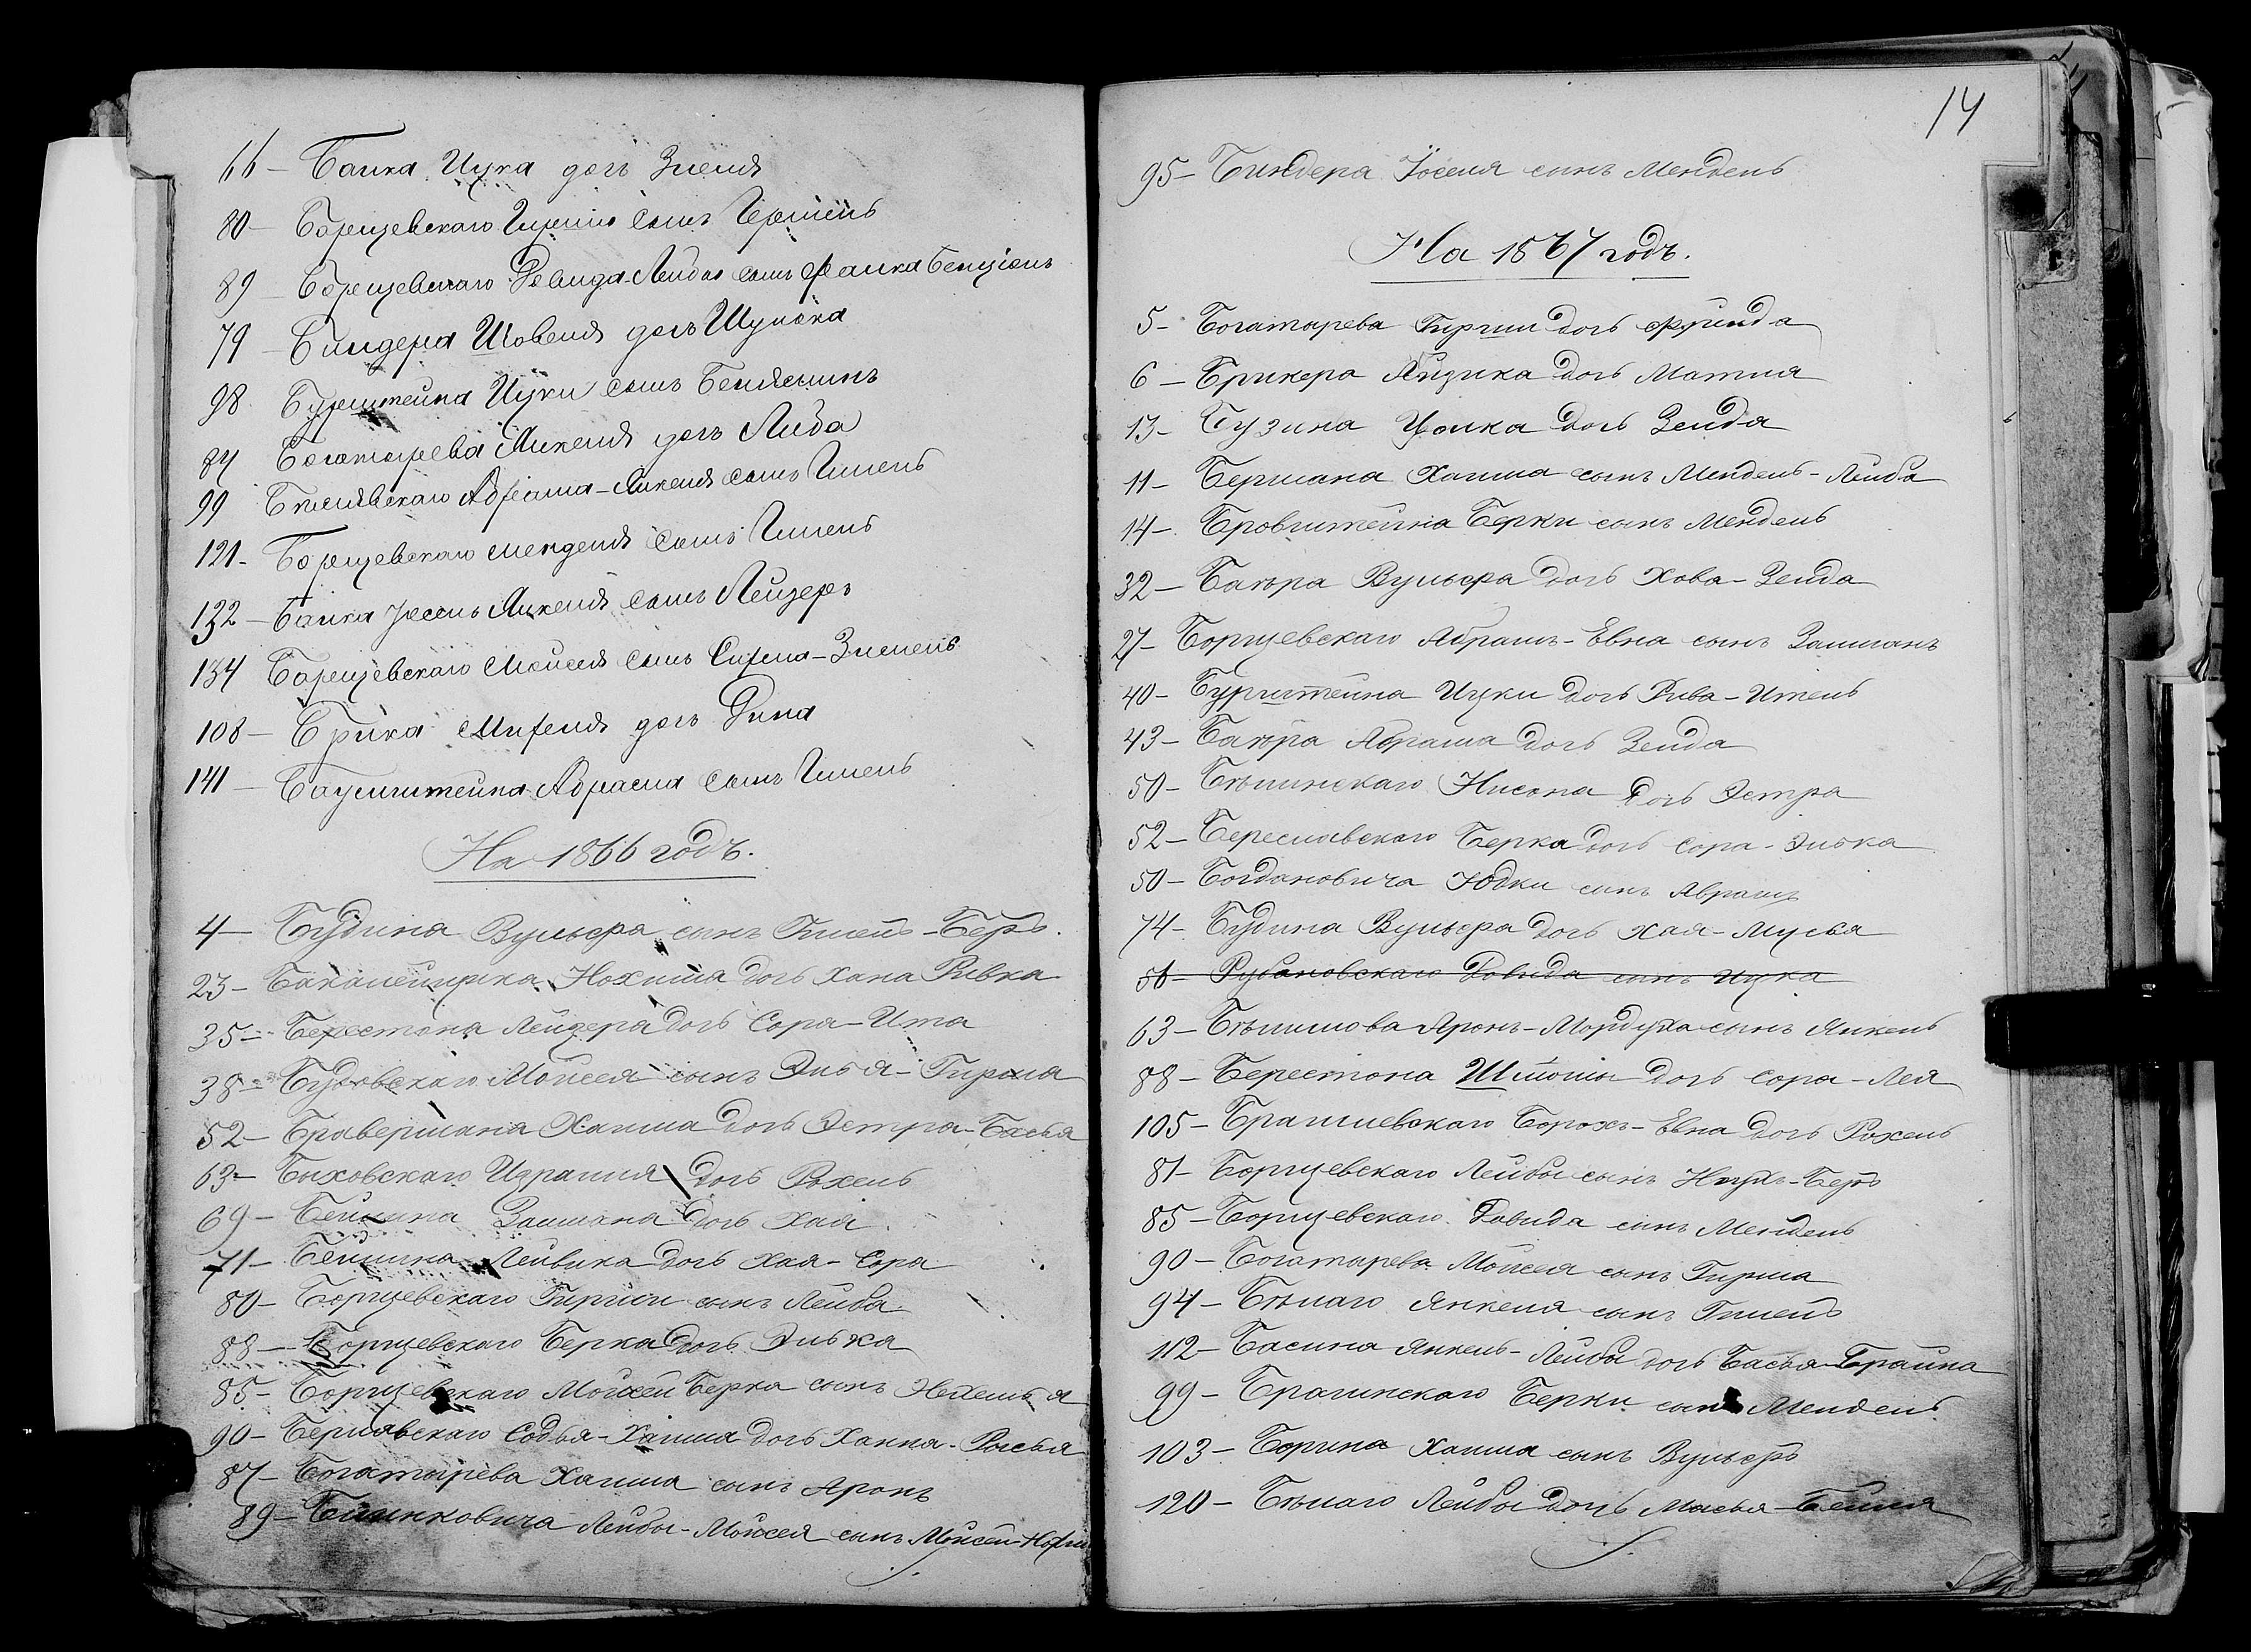 66 — Банка Ицка дочь Знемя
80 — Борщевскаго Гирши сынъ Гершень
89 — Борщевскаго Довида-Лейбы сынъ Файка Бенціонъ
79 — Биндера Шовеля дочь
98 Бурштейна Ицки сынъ Беньяминъ
84 Богатырева Янкеля дочь Либа
99 Абрама-Янкеля сынъ Гилель
121 - Борщевскаго Менделя сынъ Гилель
132 — Банка Янкеля сынъ Лейзеръ
134 Борщевскаго Мойсея сынъ
108 — Брика дочь Дина
141 — Баумштейна Абрама сынъ Гилель
На 1866 годъ.
4 — Будина Вульфа сынъ Шмеиль-Беръ.
23 — Бакалейщика Нохима дочь Хана Ривка
35 — Берестона Лейзера дочь Сора-Ита
38 — Мойсея сынъ Элья-Гирша
52 — Бравермана Хаима дочь Эстра-Басья
63 — Быховскаго Израиля дочь Рохель
69 — Бейлина Залмана дочь Хая.
71 — Бейлина Лейвика дочь Хая-Сора
80 — Борщевскаго Гирши сынъ Лейба
88 — Борщевскаго Берка дочь Элька
85 — Борщевскаго Мойсей Берка сынъ Нехемья
90 — Бернявскаго Хаима дочь Ханна-Рысья
87 — Богатырева Хаима сынъ Аронъ
89 — Блинковича Лейбы-Мойсея сынъ Мойсей-
14
95 — Биндера Іоселя сынъ Мендель
На 1867 годъ.
5 - Богатырева Гирши дочь Фрейда
6 — Брикера Айзика дочь Матля
13 - Бузина дочь Зелда
11 - Бермана Хаима сынъ Мендель-Лейба
14 - Бровштейна Берки сынъ Мендель
32 — Баера Вульфа дочь Хова-Зелда
27 - Борщевскаго Абрамъ-Евна сынъ Залманъ
40 - Бурштейна Ицки дочь Рива-Итель
43 - Баера Абрама дочь Зелда
50 - Бѣлинскаго Нисона дочь Эстра
52 - Береславскаго Берка дочь Сора-Элька
50 - Богдановича Юдки сынъ Абрамъ
74 - Будина Вульфа дочь Хая-Мусья
56 - Рубановскаго Довида сынъ Ицка
63 - Аронъ-Мордуха сынъ Янкель
88 - Берестона Шлёмы дочь Сора-Лея
105 - Брагилевскаго Борохъ-Евна дочь Рохель
81 - Борщевскаго Лейбы сынъ Нохъ-Беръ
85 - Борщевскаго Довида сынъ Мендель
90 - Богатырева Мойсея сынъ Гирша
94 - Бѣлаго Янкеля сынъ Шмеиль
112 - Басина Янкель-Лейбы дочь Басья-Брайна
99 - Брагинскаго Берки сынъ Мендель
103 - Борина Хаима сынъ Вульфъ
120 - Бѣлаго Лейбы дочь Масья-Бейля